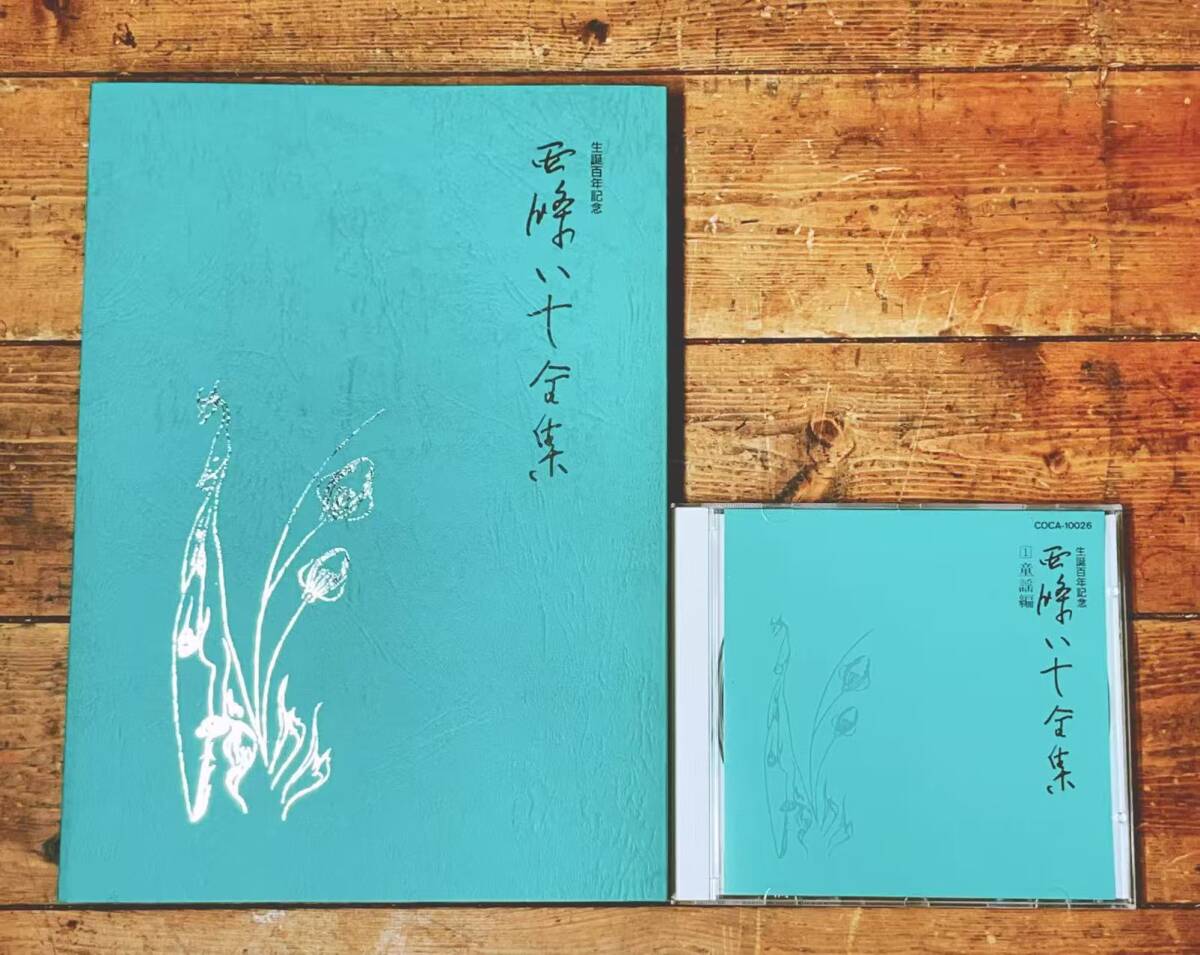 生誕百年記念
西條八十全集
COCA-10026
生誕百年記念
西條八十全集
1 童謡編